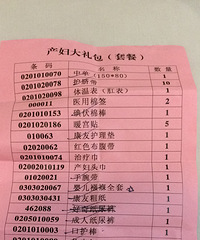 产妇大礼包（套餐）
条码 名称 数量
0201010070 中单（150*80） 1
0201020078 护脐带 10
0201020098 体温表（肛表） 1
000011 医用棉签 2
0201010153 碘伏棉棒 1
0201020186 暖宫贴 5
010063 康友护理垫 1
02020062 红色布腹带 1
0201010074 治疗巾 1
02002010119 产妇头巾 1
01020021 手腕带 1
0303020067 婴儿襁褓全套 1
0303030431 康友粗纸 1
462088 好奇纸尿裤 1
0205010059 成人纸尿裤 1
0201010003 口护棒 1